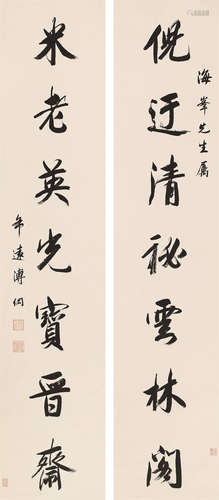 海華先生屬
倪迂清祕雲林閣
米老英光寶晉齋
溥侗